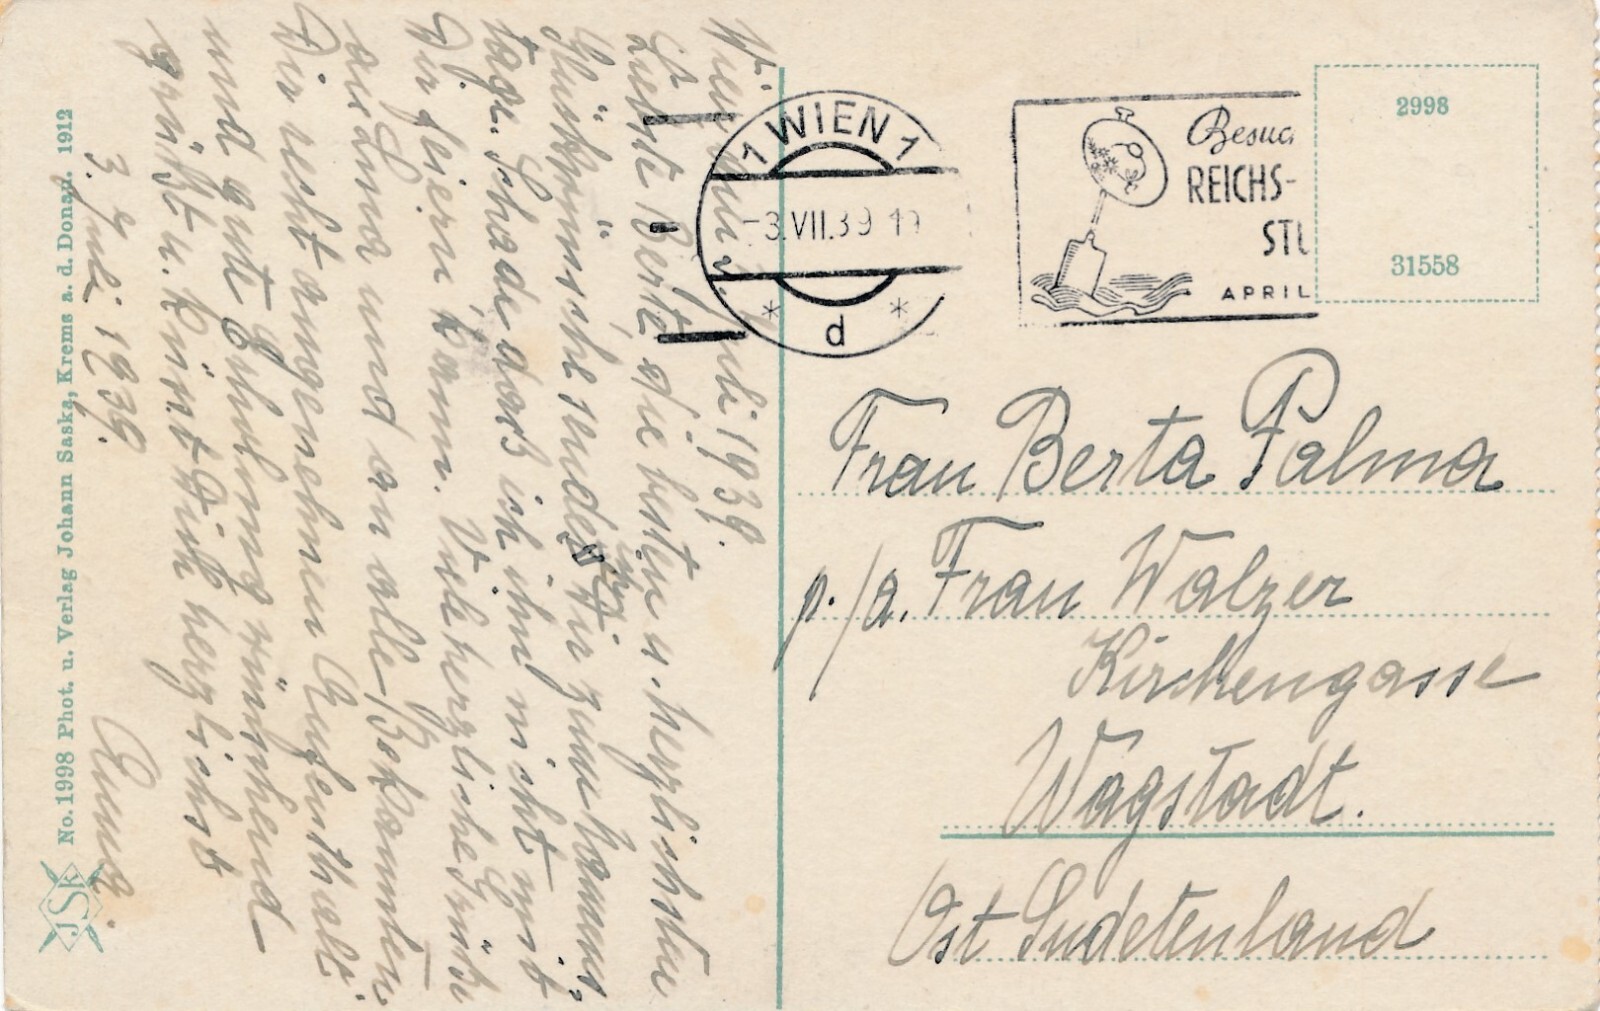 Wien am 3. Juli 1939.
Liebe Berta, die besten u. herzlichsten
Glückwünsche sendet Dir zum Namens-
tage. Schade daß ich ihn nicht mit
Dir feiern kann. Viele herzliche Grüße
an und an alle Bekannten
Dir recht angenehmen Aufenthalt
und gute Erholung wünschend
grüßt u. küßt Dich herzlichst
3. Juli 1939.
Anna.
No. 1998 Phot. u. Verlag Johann Saska, Krems a. d. Donau. 1912
JSK
1 WIEN 1
-3.VII.39
* d *
Besuc
REICHS-
STU
APRIL
2998
31558
Frau Berta Palma
p./a. Frau Walzer
Kirchengasse
Wagstadt.
Ost Sudetenland